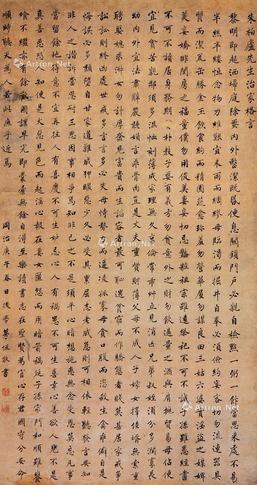 朱柏廬先生治家格言
黎明即起洒掃庭除要內外整潔既昏便息關鎖門戶必親自檢點一粥一飯當思來處不易
半絲半縷恆念物力維艱宜未雨而綢繆毋臨渴而掘井自奉必須儉約宴客切勿流連器具
質而潔瓦缶勝金玉飲食約而精園蔬愈珍饈勿營華屋勿謀良田三姑六婆實淫盜之媒婢
美妾嬌非閨房之福童僕勿用俊美妻妾切忌豔妝祖宗雖遠祭祀不可不誠子孫雖愚經書
不可不讀居身務期質樸教子要有義方勿貪意外之財勿飲過量之酒與肩挑貿易毋佔便
宜見貧苦親鄰須多溫恤刻薄成家理無久享倫常乖舛立見消亡兄弟叔姪須分多潤寡長
幼內外宜法肅辭嚴聽婦言乖骨肉豈是丈夫重貲財薄父母不成人子嫁女擇佳婿毋索重
聘娶媳求淑女勿計厚奩見富貴而生諂容者最可恥遇貧窮而作驕態者賤莫甚居家戒爭
訟訟則終凶處世戒多言言多必失毋恃勢力而凌逼孤寡勿貪口腹而恣殺生禽乖僻自是
悔誤必多頹惰自甘家道難成狎暱惡少久必受其累屈志老成急則可相依輕聽發言安知
非人之譖愬當忍耐三思因事相爭焉知非己之不是須平心暗想施惠無念受恩莫忘凡事
當留餘地得意不宜再往人有喜慶不可生妒忌心人有禍患不可生喜幸心善欲人見不是
真善惡恐人知便是大惡見色而起淫心報在妻女匿怨而用暗箭禍延子孫家門和順雖饔
飧不繼亦有餘歡國課早完即囊橐無餘自得至樂讀書志在聖賢為官心存君國守分安命
順時聽天為人若此庶乎近焉
同治庚午春日 敬書